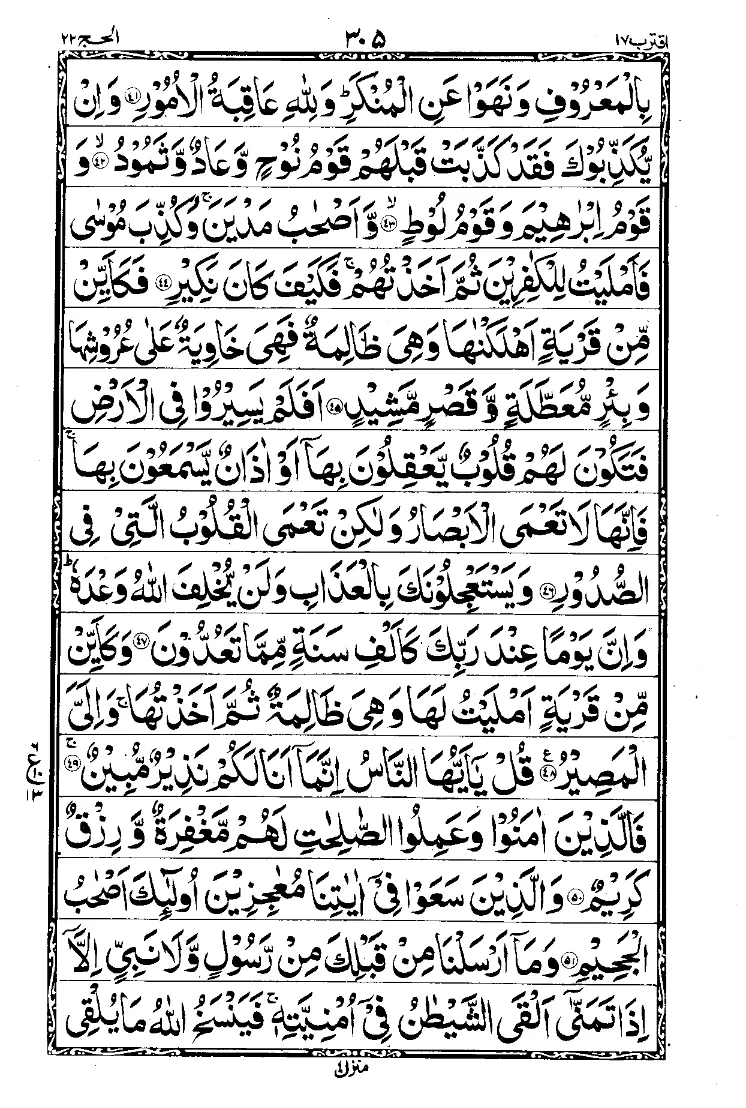 اقترب ١٧ ٣٠٥ الحج ٢٢
بِالْمَعْرُوْفِ وَنَهَوْا عَنِ الْمُنْكَرِؕ وَلِلّٰهِ عَاقِبَةُ الْاُمُوْرِ ﴿۴۱﴾ وَاِنْ
يُّكَذِّبُوْكَ فَقَدْ كَذَّبَتْ قَبْلَهُمْ قَوْمُ نُوْحٍ وَّعَادٌ وَّثَمُوْدُۙ ﴿۴۲﴾ وَ
قَوْمُ اِبْرٰهِيْمَ وَقَوْمُ لُوْطٍۙ ﴿۴۳﴾ وَّاَصْحٰبُ مَدْيَنَۚ وَكُذِّبَ مُوْسٰى
فَاَمْلَيْتُ لِلْكٰفِرِيْنَ ثُمَّ اَخَذْتُهُمْۚ فَكَيْفَ كَانَ نَكِيْرِ ﴿۴۴﴾ فَكَاَيِّنْ
مِّنْ قَرْيَةٍ اَهْلَكْنٰهَا وَهِىَ ظَالِمَةٌ فَهِىَ خَاوِيَةٌ عَلٰى عُرُوْشِهَا
وَبِئْرٍ مُّعَطَّلَةٍ وَّقَصْرٍ مَّشِيْدٍ ﴿۴۵﴾ اَفَلَمْ يَسِيْرُوْا فِى الْاَرْضِ
فَتَكُوْنَ لَهُمْ قُلُوْبٌ يَّعْقِلُوْنَ بِهَاۤ اَوْ اٰذَانٌ يَّسْمَعُوْنَ بِهَاۚ
فَاِنَّهَا لَا تَعْمَى الْاَبْصَارُ وَلٰكِنْ تَعْمَى الْقُلُوْبُ الَّتِىْ فِى
الصُّدُوْرِ ﴿۴۶﴾ وَيَسْتَعْجِلُوْنَكَ بِالْعَذَابِ وَلَنْ يُّخْلِفَ اللّٰهُ وَعْدَهٗؕ
وَاِنَّ يَوْمًا عِنْدَ رَبِّكَ كَاَلْفِ سَنَةٍ مِّمَّا تَعُدُّوْنَ ﴿۴۷﴾ وَكَاَيِّنْ
مِّنْ قَرْيَةٍ اَمْلَيْتُ لَهَا وَهِىَ ظَالِمَةٌ ثُمَّ اَخَذْتُهَاۚ وَاِلَىَّ
الْمَصِيْرُ ﴿۴۸﴾ع قُلْ يٰۤاَيُّهَا النَّاسُ اِنَّمَاۤ اَنَا لَكُمْ نَذِيْرٌ مُّبِيْنٌۚ ﴿۴۹﴾
فَالَّذِيْنَ اٰمَنُوْا وَعَمِلُوا الصّٰلِحٰتِ لَهُمْ مَّغْفِرَةٌ وَّرِزْقٌ
كَرِيْمٌ ﴿۵۰﴾ وَالَّذِيْنَ سَعَوْا فِىْۤ اٰيٰتِنَا مُعٰجِزِيْنَ اُولٰٓئِكَ اَصْحٰبُ
الْجَحِيْمِ ﴿۵۱﴾ وَمَاۤ اَرْسَلْنَا مِنْ قَبْلِكَ مِنْ رَّسُوْلٍ وَّلَا نَبِىٍّ اِلَّاۤ
اِذَا تَمَنّٰٓى اَلْقَى الشَّيْطٰنُ فِىْۤ اُمْنِيَّتِهٖۚ فَيَنْسَخُ اللّٰهُ مَا يُلْقِى